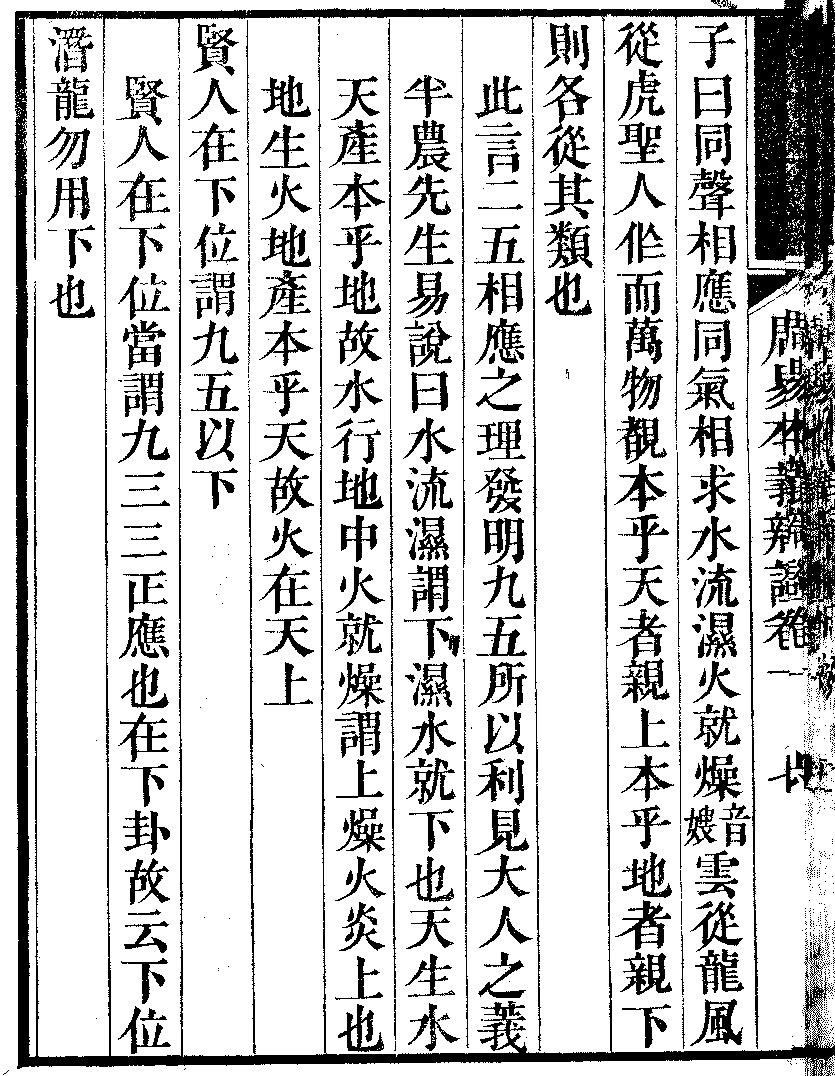 周易本義辨證卷一
子曰同聲相應同氣相求水流濕火就燥音嫂雲從龍風
從虎聖人作而萬物覩本乎天者親上本乎地者親下
則各從其類也
此言二五相應之理發明九五所以利見大人之義
半農先生易說曰水流濕謂下濕水就下也天生水
天產本乎地故水行地中火就燥謂上燥火炎上也
地生火地產本乎天故火在天上
賢人在下位謂九五以下
賢人在下位當謂九三三正應也在下卦故云下位
潛龍勿用下也